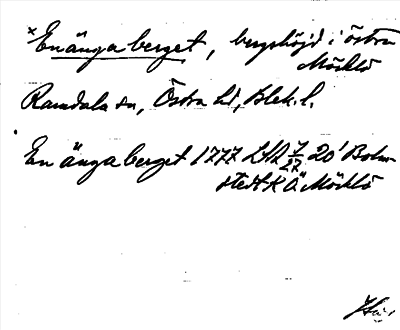 ×Enänga berget, bergshöjd i östra
Möcklö
Ramdala sn, Östra hd, Blek. l.
En änga berget 1777 LSA 7/27 20' Bohm-
stedt K Ö Möcklö